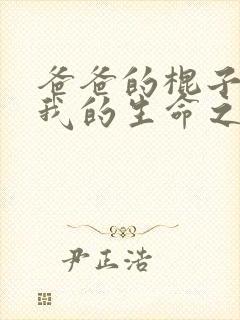 爸爸的棍子
我的生命之
尹正浩